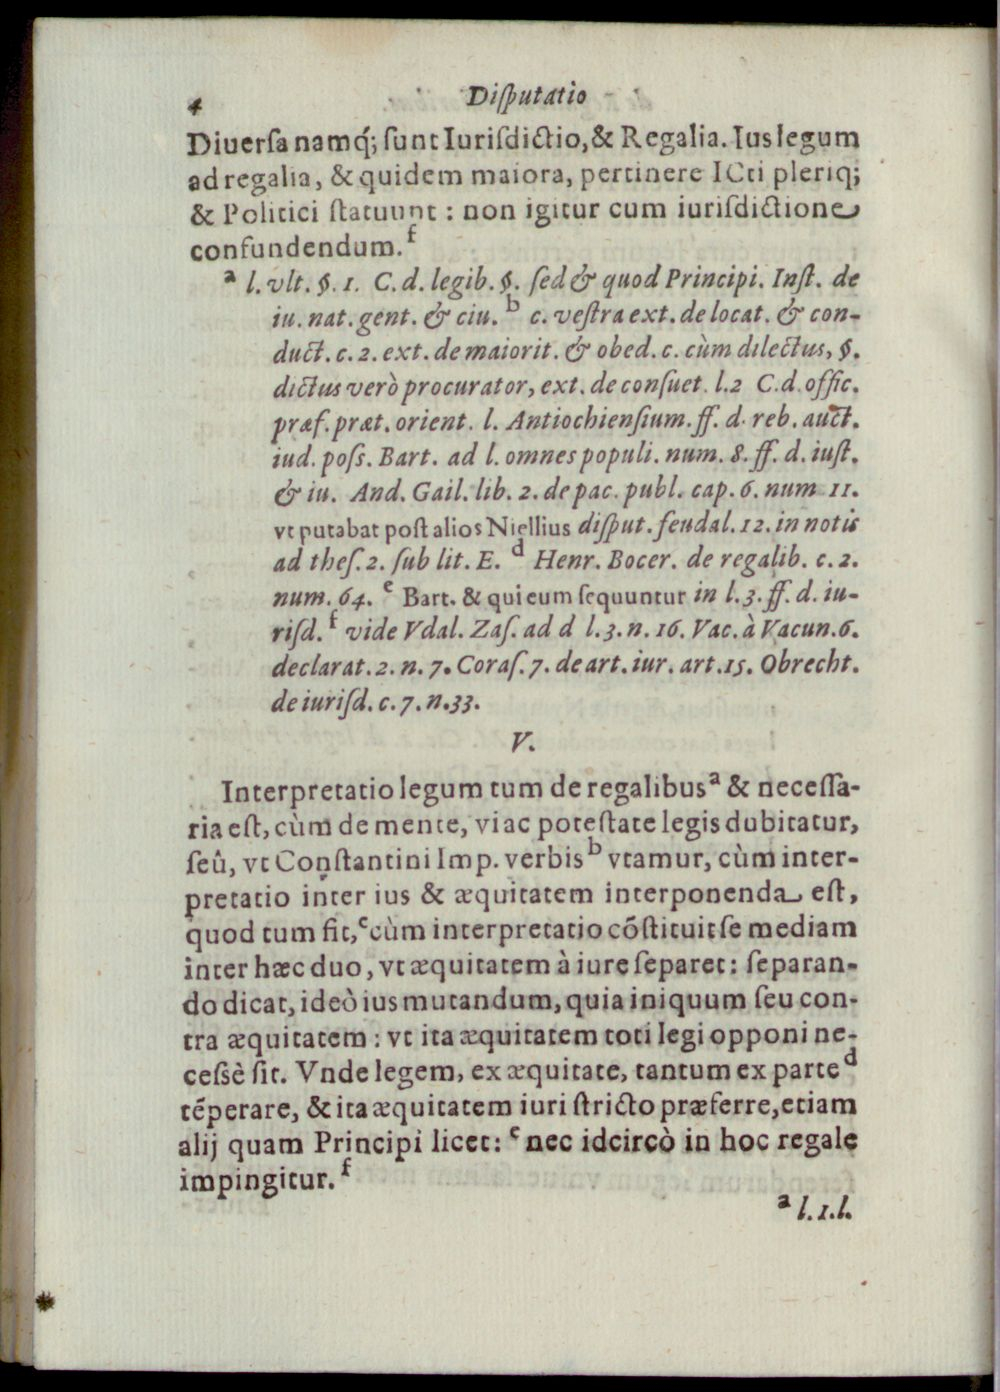 4 Diſputatio
Diuerſa namq́; ſunt Iurisdictio, & Regalia. Ius legum
ad regalia, & quidem maiora, pertinere ICti pleriq;
& Politici ſtatuunt : non igitur cum iurisdictione
confundendum.ᶠ
ᵃ l. vlt. §. 1. C. d. legib. §. ſed & quod Principi. Inſt. de
iu. nat. gent. & ciu. ᵇ c. veſtra ext. de locat. & con-
duct. c. 2. ext. de maiorit. & obed. c. cùm dilectus, §.
dictus verò procurator, ext. de conſuet. l.2 C. d. offic.
præf. præt. orient. l. Antiochienſium. ff. d. reb. auct.
iud. poſs. Bart. ad l. omnes populi. num. 8. ff. d. iuſt.
& iu. And. Gail. lib. 2. de pac. publ. cap. 6. num 11.
vt putabat poſt alios Niellius diſput. feudal. 12. in notis
ad theſ. 2. ſub lit. E. ᵈ Henr. Bocer. de regalib. c. 2.
num. 64. ᵉ Bart. & qui eum ſequuntur in l. 3. ff. d. iu-
riſd. ᶠ vide Vdal. Zaſ. ad d l. 3. n. 16. Vac. à Vacun. 6.
declarat. 2. n. 7. Coraſ. 7. de art. iur. art. 15. Obrecht.
de iuriſd. c. 7. n. 33.
V.
Interpretatio legum tum de regalibusᵃ & neceſſa-
ria eſt, cùm de mente, vi ac poteſtate legis dubitatur,
ſeû, vt Conſtantini Imp. verbisᵇ vtamur, cùm inter-
pretatio inter ius & æquitatem interponenda eſt,
quod tum fit,ᶜ cùm interpretatio cōſtituit ſe mediam
inter hæc duo, vt æquitatem à iure ſeparet : ſeparan-
do dicat, ideò ius mutandum, quia iniquum ſeu con-
tra æquitatem : vt ita æquitatem toti legi opponi ne-
ceſsè ſit. Vnde legem, ex æquitate, tantum ex parteᵈ
tēperare, & ita æquitatem iuri ſtricto præferre, etiam
alij quam Principi licet : ᵉ nec idcircò in hoc regale
impingitur.ᶠ
ᵃ l. 1. l.